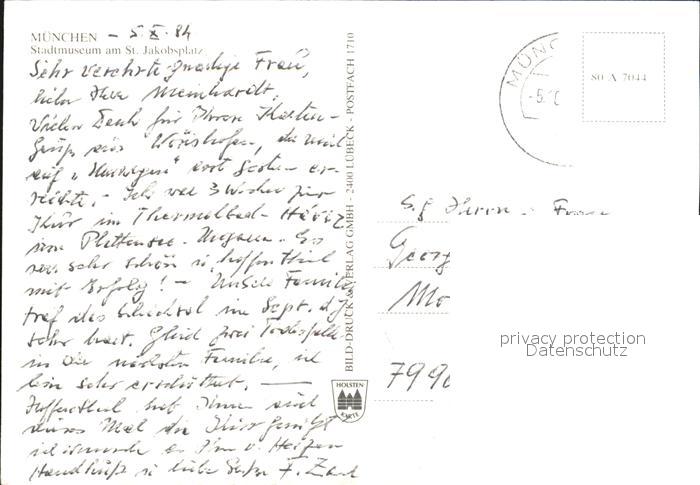 MÜNCHEN - 5.X.84
Stadtmuseum am St. Jakobsplatz
Sehr verehrte gnädige Frau,
lieber Herr Meinhardt,
Vielen Dank für Ihren Karten-
Gruß aus Wörishofen, der mich
auf " " erst
. - Ich war 3 Wochen zur
Kur im Thermalbad - Héviz
am Plattensee - Ungarn. Es
war sehr schön u. hoffentlich
mit Erfolg! - Unsere Familie
traf das Schicksal im Sept. d.J.
sehr hart. Gleich zwei Todesfälle
in der nächsten Familie, ich
bin sehr erschüttert. -
Hoffentlich hat Ihnen auch
dieses Mal die Kur genützt
ich wünsche es Ihnen v. Herzen
Handkuß u. liebe Grüße F.
BILD-DRUCK &amp; VERLAG GMBH - 2400 LÜBECK - POSTFACH 1710
HOLSTEN
KARTE
MÜNC
-5.
80 A 7044
S.g. Herrn u. Frau
Georg
Me
799
privacy protection
Datenschutz